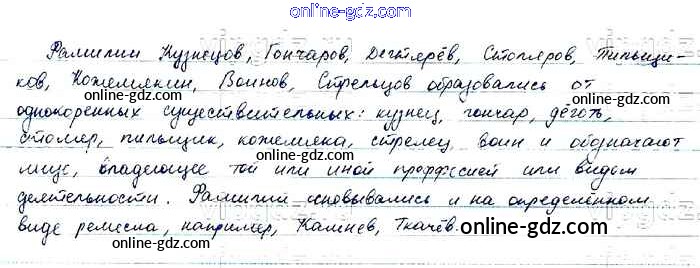 online-gdz.com
Фамилии Кузнецов, Гончаров, Дегтярёв, Столяров, Пильщи-
ков, Кожемякин, Воинов, Стрельцов образовались от
online-gdz.com
однокоренных существительных: кузнец, гончар, дёготь,
столяр, пильщик, кожемяка, стрелец, воин и обозначают
лицо, владеющее той или иной профессией или видом
деятельности. Фамилии основывались и на определённом
виде ремесла, например, Камнев, Ткачёв.
online-gdz.com
online-gdz.com
online-gdz.com
online-gdz.com